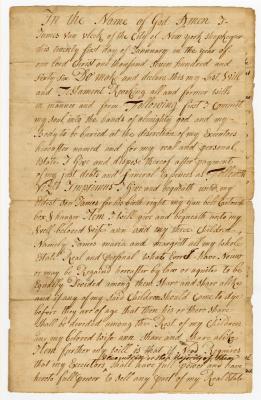 In the Name of God Amen I
James Van Vleck of the City of New york shopkeeper
this twenty first day of January in the year of
our lord Christ one thousand seven hundred and
sixty six Do make and declare this my Last Will
and Testament Revoking all and former wills
in manner and form Following first I Committ
my soul into the hands of almighty god and my
Body to be buried at the discretion of my Executors
hereafter named and for my real and personal
Estate I Give and dispose thereof after payment
of my just debts and funeral Expences as Followeth
Viz Imprimis I Give and bequeath unto my
Eldest son James for his birth right my gun belt Cartouch
box & hanger Item I will give and bequeath unto my
well beloved wife ann and my three Children
Namely James maria and margrit all my whole
Estate Real and personal whatsoever I have Now
or may be Regained hereafter by law or equitee to be
Equally Devided among them Share and Share alike
and if any of my said Children should Come to dye
before they are of age that then his or there share
shall be devided among the Rest of my Children
and my beloved wife ann Share and Share alike
Item further my will is that if Need Requires
that my Executors shall have full power and
hereto full power to sell any part of my Real Estate